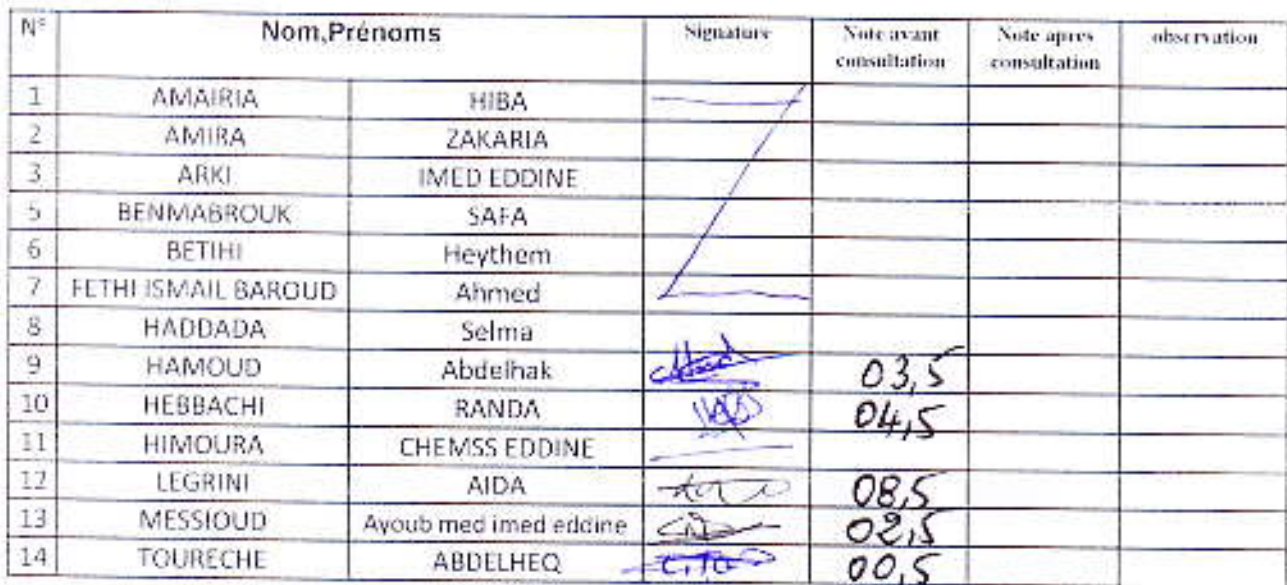 N° Nom,Prénoms Signature Note avant consultation Note apres consultation observation
1 AMAIRIA HIBA
2 AMIRA ZAKARIA
3 ARKI IMED EDDINE
5 BENMABROUK SAFA
6 BETIHI Heythem
7 FETHI ISMAIL BAROUD Ahmed
8 HADDADA Selma
9 HAMOUD Abdelhak 03,5
10 HEBBACHI RANDA 04,5
11 HIMOURA CHEMSS EDDINE
12 LEGRINI AIDA 08,5
13 MESSIOUD Ayoub med imed eddine 02,5
14 TOURECHE ABDELHEQ 00,5